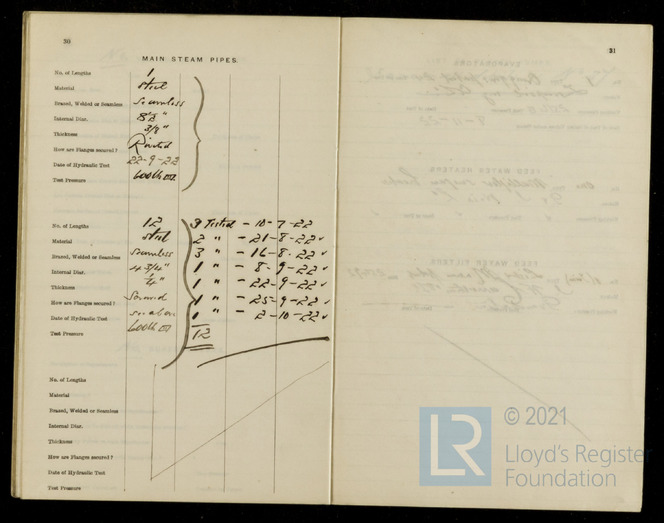 30
MAIN STEAM PIPES.
No. of Lengths 1
Material Steel
Brazed, Welded or Seamless Seamless
Internal Diar. 8½"
Thickness 3/8"
How are Flanges secured? Riveted
Date of Hydraulic Test 22-9-22
Test Pressure 600 lb
No. of Lengths 12 3 Tested - 10-7-22
Material Steel 2 " - 21-8-22 ✓
Brazed, Welded or Seamless Seamless 3 " - 16-8-22 ✓
Internal Diar. 4 3/4" 1 " - 8-9-22 ✓
Thickness ¼" 1 " - 22-9-22 ✓
How are Flanges secured? Screwed 1 " - 25-9-22 ✓
Date of Hydraulic Test see above 1 " - 2-10-22 ✓
Test Pressure 600 lb 12
No. of Lengths
Material
Brazed, Welded or Seamless
Internal Diar.
Thickness
How are Flanges secured?
Date of Hydraulic Test
Test Pressure
31
LR © 2021
Lloyd's Register
Foundation